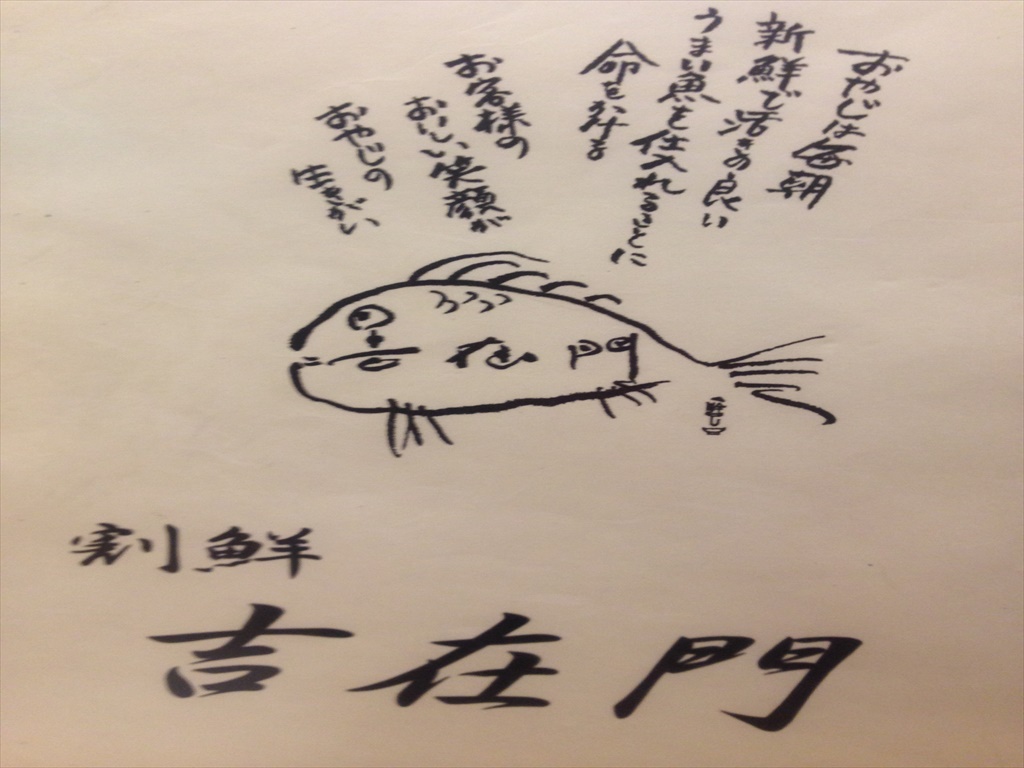 おやじは毎朝
新鮮で活きの良い
うまい魚を仕入れることに
命をかける
お客様の
おいしい笑顔が
おやじの
生きがい
吉在門
割鮮
吉在門